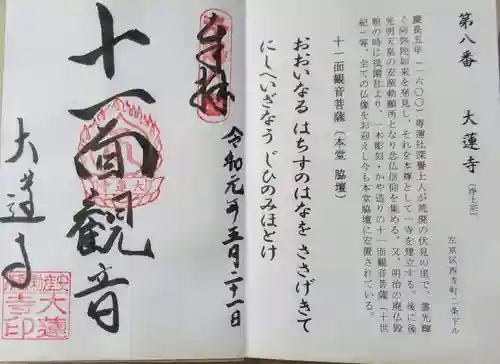 第八番　大蓮寺（浄土宗）
左京区西寺町二条下ル
慶長五年（一六〇〇）専蓮社深誉上人が荒廃の伏見の里で、霊光輝
く阿弥陀如来を発見し、それを本尊として一寺を建立する。後に後
光明天皇の安産勅願所となり念仏信仰を集める。又、明治の廃仏毀
釈の時に祇園社より、一木彫刻・かや造りの十一面観音菩薩（十世
紀）等、全ての仏像をお迎えし今も本堂脇壇に安置されている。
十一面観音菩薩（本堂 脇壇）
おおいなる はちすのはなを ささげきて
にしへいざなう じひのみほとけ
奉拝
令和元年五月二十一日
十一面観音
大蓮寺
大蓮寺印